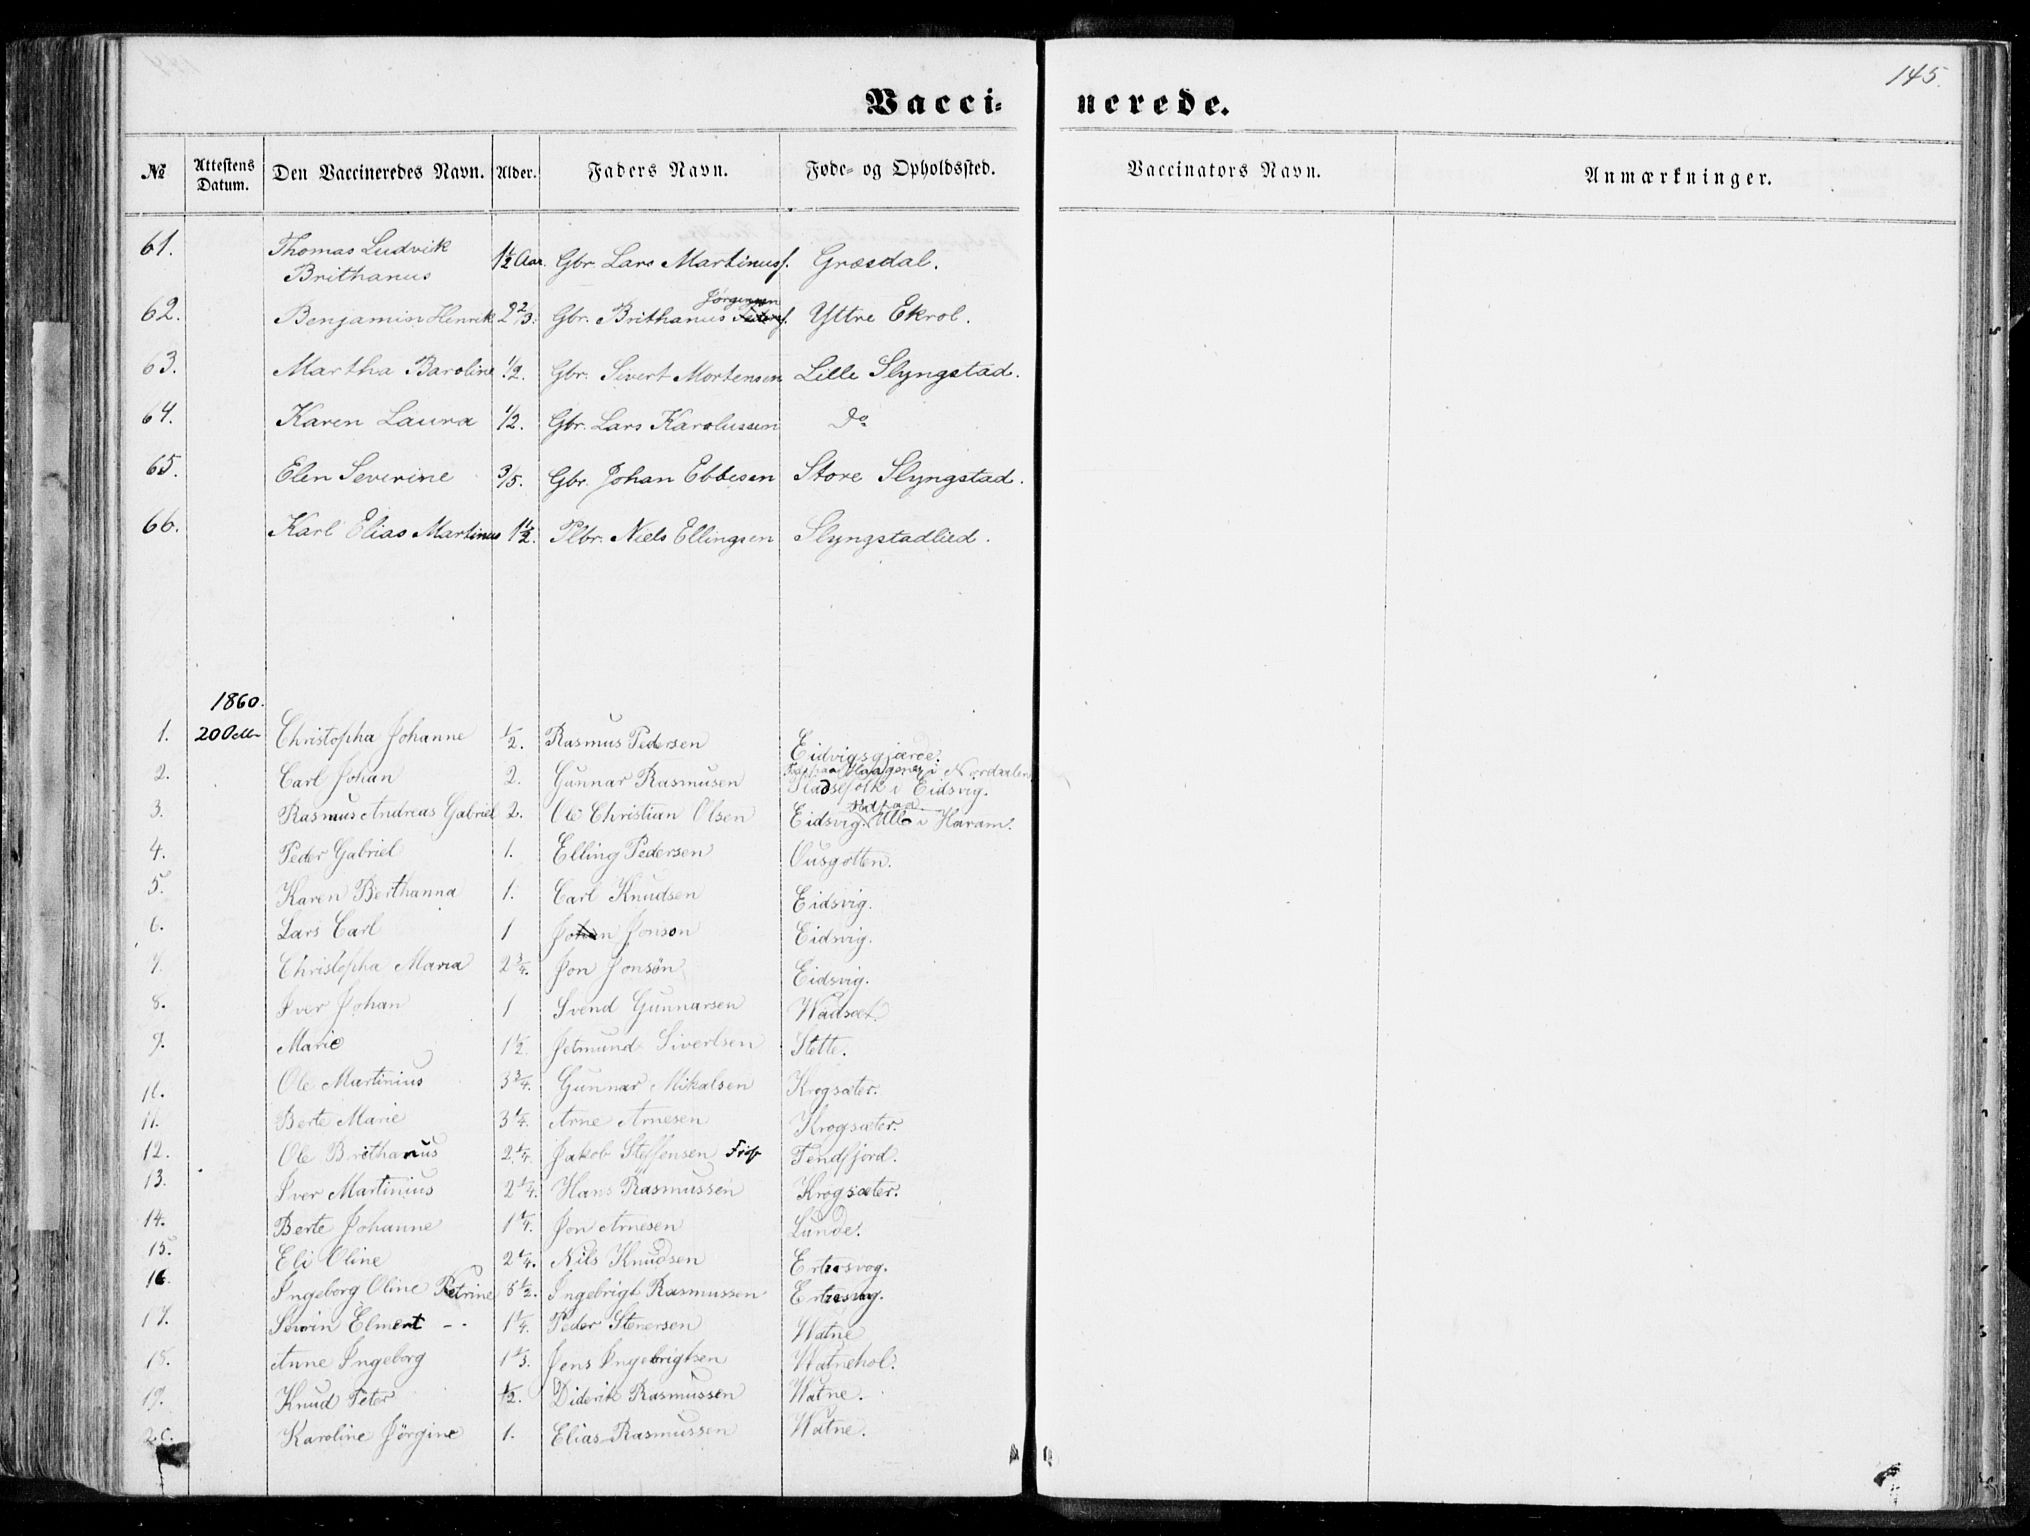 145.
Vacci- nerede.
№ Attestens Datum. Den Vaccineredes Navn. Alder. Faders Navn. Føde- og Opholdssted. Vaccinators Navn. Anmærkninger.
61. Thomas Ludvik Brithanus 1½ Aar. Gbr. Lars Martinuss. Græsdal.
62. Benjamin Henrik 2 2/3. Gbr. Brithanus Jørgensen Yttre Ekrol.
63. Martha Baroline 1/2. Gbr. Sivert Mortensen Lille Slyngstad.
64. Karen Laura 1/2. Gbr. Lars Karolussen do
65. Elen Severine 3/5. Gbr. Johan Ebbesen Store Slyngstad.
66. Karl Elias Martinus 1½. Plbr. Niels Ellingsen Slyngstadlied.
1860.
1. 20 Octbr Christopha Johanne ½. Rasmus Pedersen Eidvigsgjærde.
2. Carl Johan 2. Gunnar Rasmusen Nordalen Pladsefolk i Eidsvig.
3. Rasmus Andreas Gabriel 2. Ole Christian Olsen Eidsvig. fød paa Ulla i Haram.
4. Peder Gabriel 1. Elling Pedersen
5. Karen Berthanna 1. Carl Knudsen Eidsvig.
6. Lars Carl 1 Jonson Eidsvig.
7. Christopha Maria 2¾. Jon Jonsøn Eidsvig.
8. Iver Johan 1 Svend Gunnarsen Wadsæt.
9. Marie 1½. Jetmund Sivertsen Slette.
10. Ole Martinius 3¾. Gunnar Mikalsen Krogsæter.
11. Berte Marie 3¼. Arne Arnesen Krogsæter.
12. Ole Brithanus 2¼. Jakob Steffensen Tendfjord.
13. Iver Martinius 2¼. Hans Rasmussen Krogsæter.
14. Berte Johanne 1¼. Jon Arnesen Lunde.
15. Eli Oline 2¼. Nils Knudsen
16. Ingeborg Oline Petrine Ingebrigt Rasmussen
17. Elmert 1¼. Peder Stenersen Watne
18. Anne Ingeborg 1⅓. Jens Ingebrigtsen Watnehol.
19. Knud Peter ½. Diderik Rasmussen Watne.
20. Karoline Jørgine 1. Elias Rasmussen Watne.